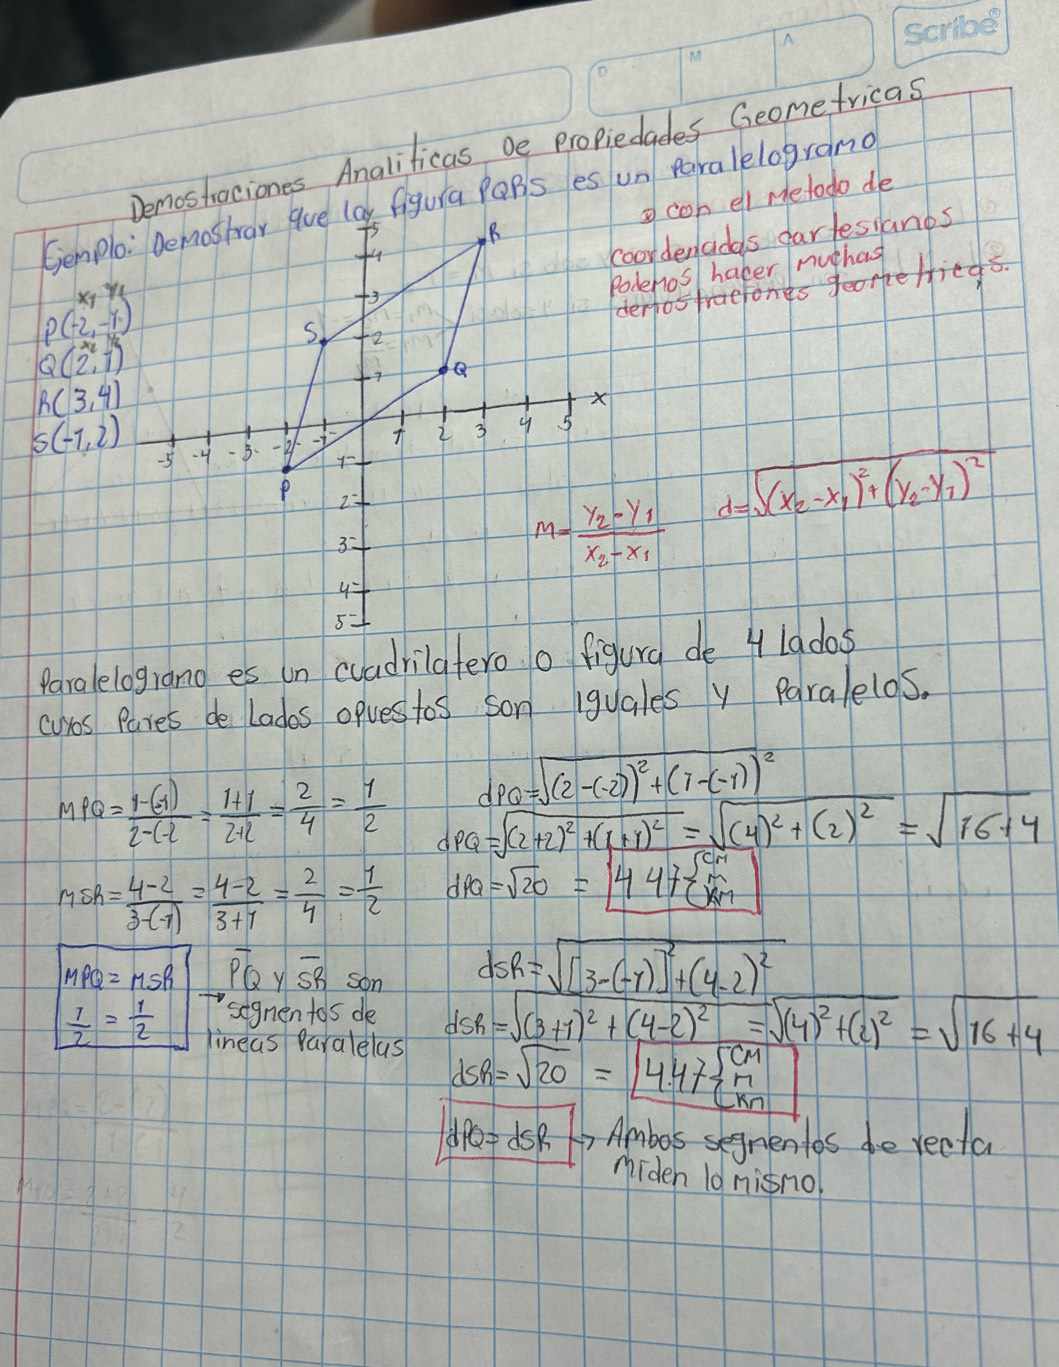 Scribe®
D M A
Demostraciones Analiticas De Propiedades Geometricas
Ejemplo: Demostrar que la figura PQRS es un Paralelogramo
con el Metodo de
coordenadas cartesianos
Podemos hacer muchas
demostraciones geometricas.
x1 y1
P(-2,-1)
x2 y2
Q(2,1)
R(3,4)
S(-1,2)
5
4
3
2
1
R
S
Q
P
x
-5 -4 -3 -2 -1 1 2 3 4 5
1-
2-
3-
4-
5-
M= y2-y1 / x2-x1
d=√(x2-x1)²+(y2-y1)²
Paralelogramo es un cuadrilatero o figura de 4 lados
cuyos Pares de Lados opuestos son iguales y Paralelos.
MPQ= 1-(-1) / 2-(-2 = 1+1 / 2+2 = 2/4 = 1/2
MSR= 4-2 / 3-(-1) = 4-2 / 3+1 = 2/4 = 1/2
MPQ= MSR
1/2 = 1/2
PQ y SR son
→ segmentos de
lineas Paralelas
dPQ=√(2-(-2))²+(1-(-1))²
dPQ=√(2+2)²+(1+1)² = √(4)²+(2)² = √16+4
dPQ=√20 = 4.47 { CM M KM
dSR=√[3-(-1)]²+(4-2)²
dSR=√(3+1)²+(4-2)² = √(4)²+(2)² = √16+4
dSR=√20 = 4.47 { CM M KM
dPQ= dSR → Ambos segmentos de recta
miden lo mismo.